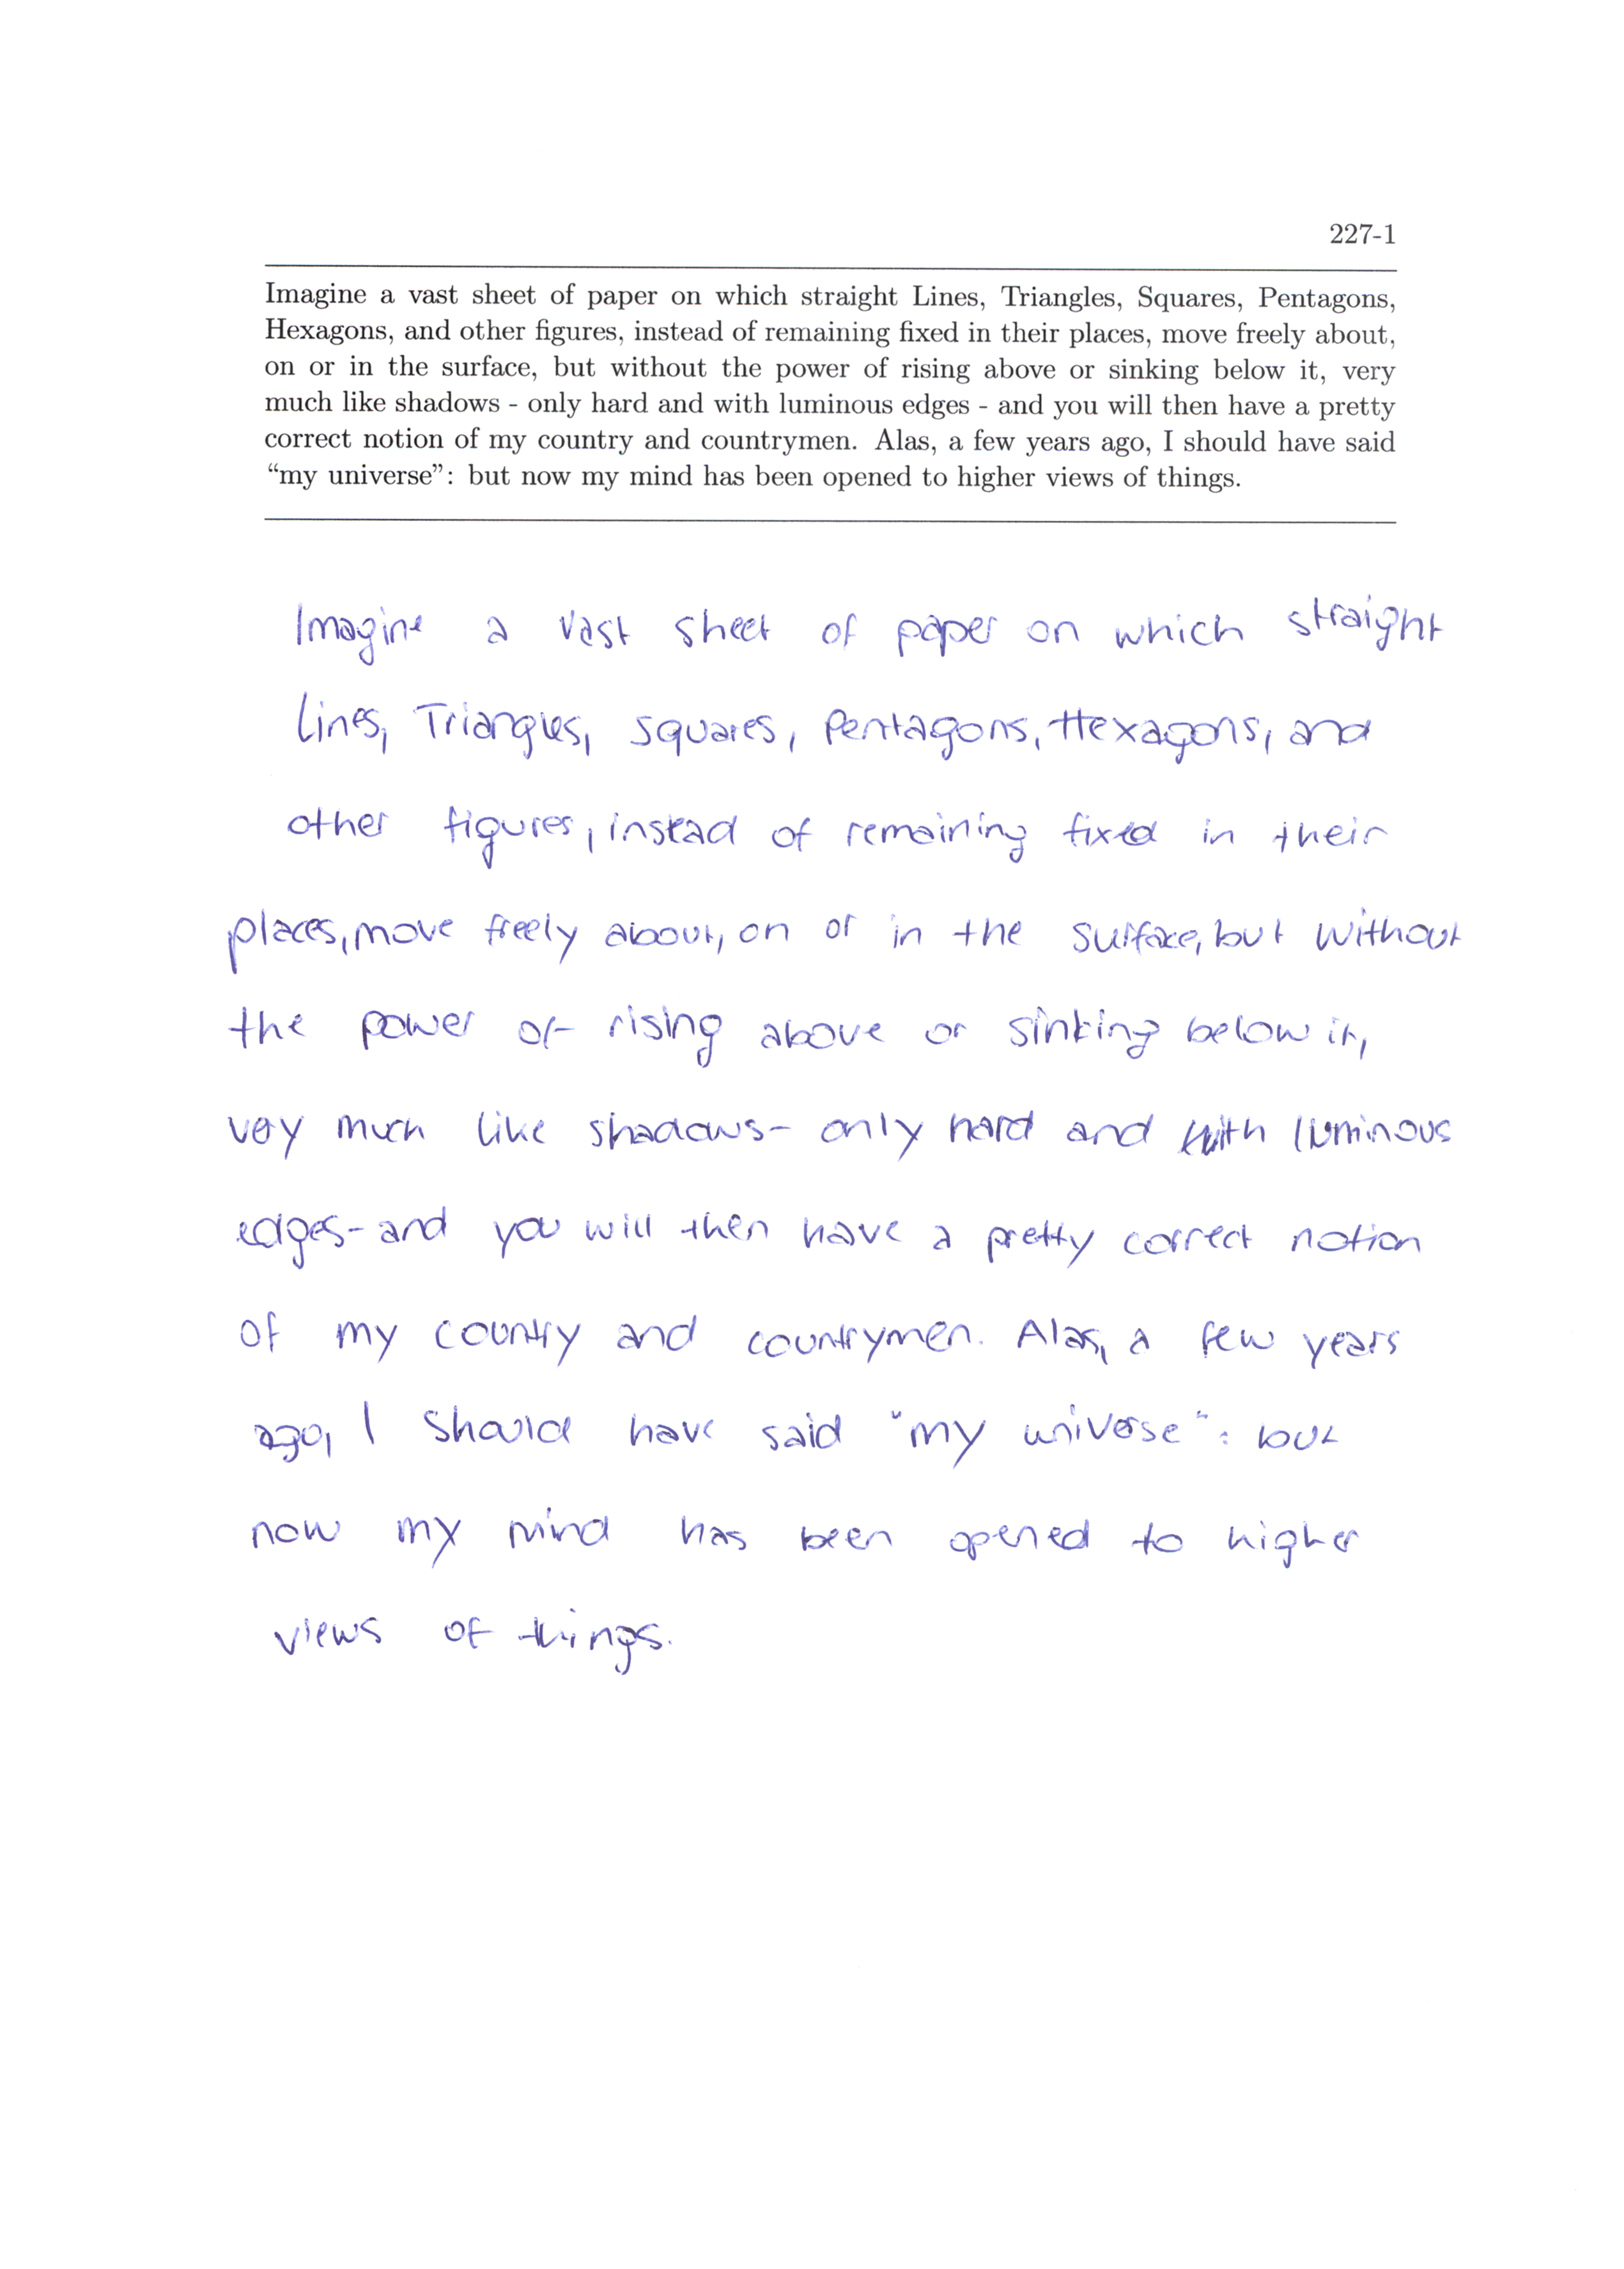 227-1
Imagine a vast sheet of paper on which straight Lines, Triangles, Squares, Pentagons,
Hexagons, and other figures, instead of remaining fixed in their places, move freely about,
on or in the surface, but without the power of rising above or sinking below it, very
much like shadows - only hard and with luminous edges - and you will then have a pretty
correct notion of my country and countrymen. Alas, a few years ago, I should have said
“my universe”: but now my mind has been opened to higher views of things.
Imagine a vast sheet of paper on which straight
Lines, Triangles, Squares, Pentagons, Hexagons, and
other figures, instead of remaining fixed in their
places, move freely about, on or in the surface, but without
the power of rising above or sinking below it,
very much like shadows - only hard and with luminous
edges - and you will then have a pretty correct notion
of my country and countrymen. Alas, a few years
ago, I should have said "my universe": but
now my mind has been opened to higher
views of things.